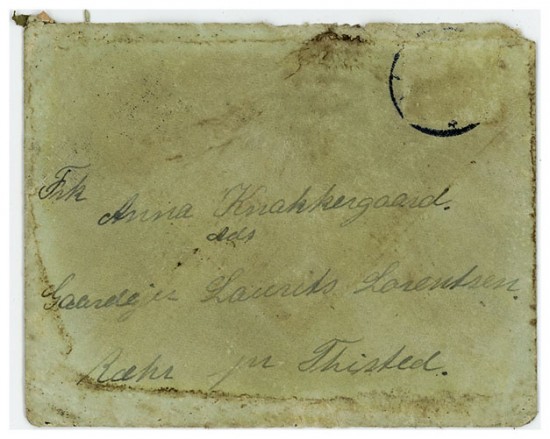 Frk
Anna Knakkergaard.
Ads
Gaardejer Laurits Lorentsen
Ræhr pr Thisted.